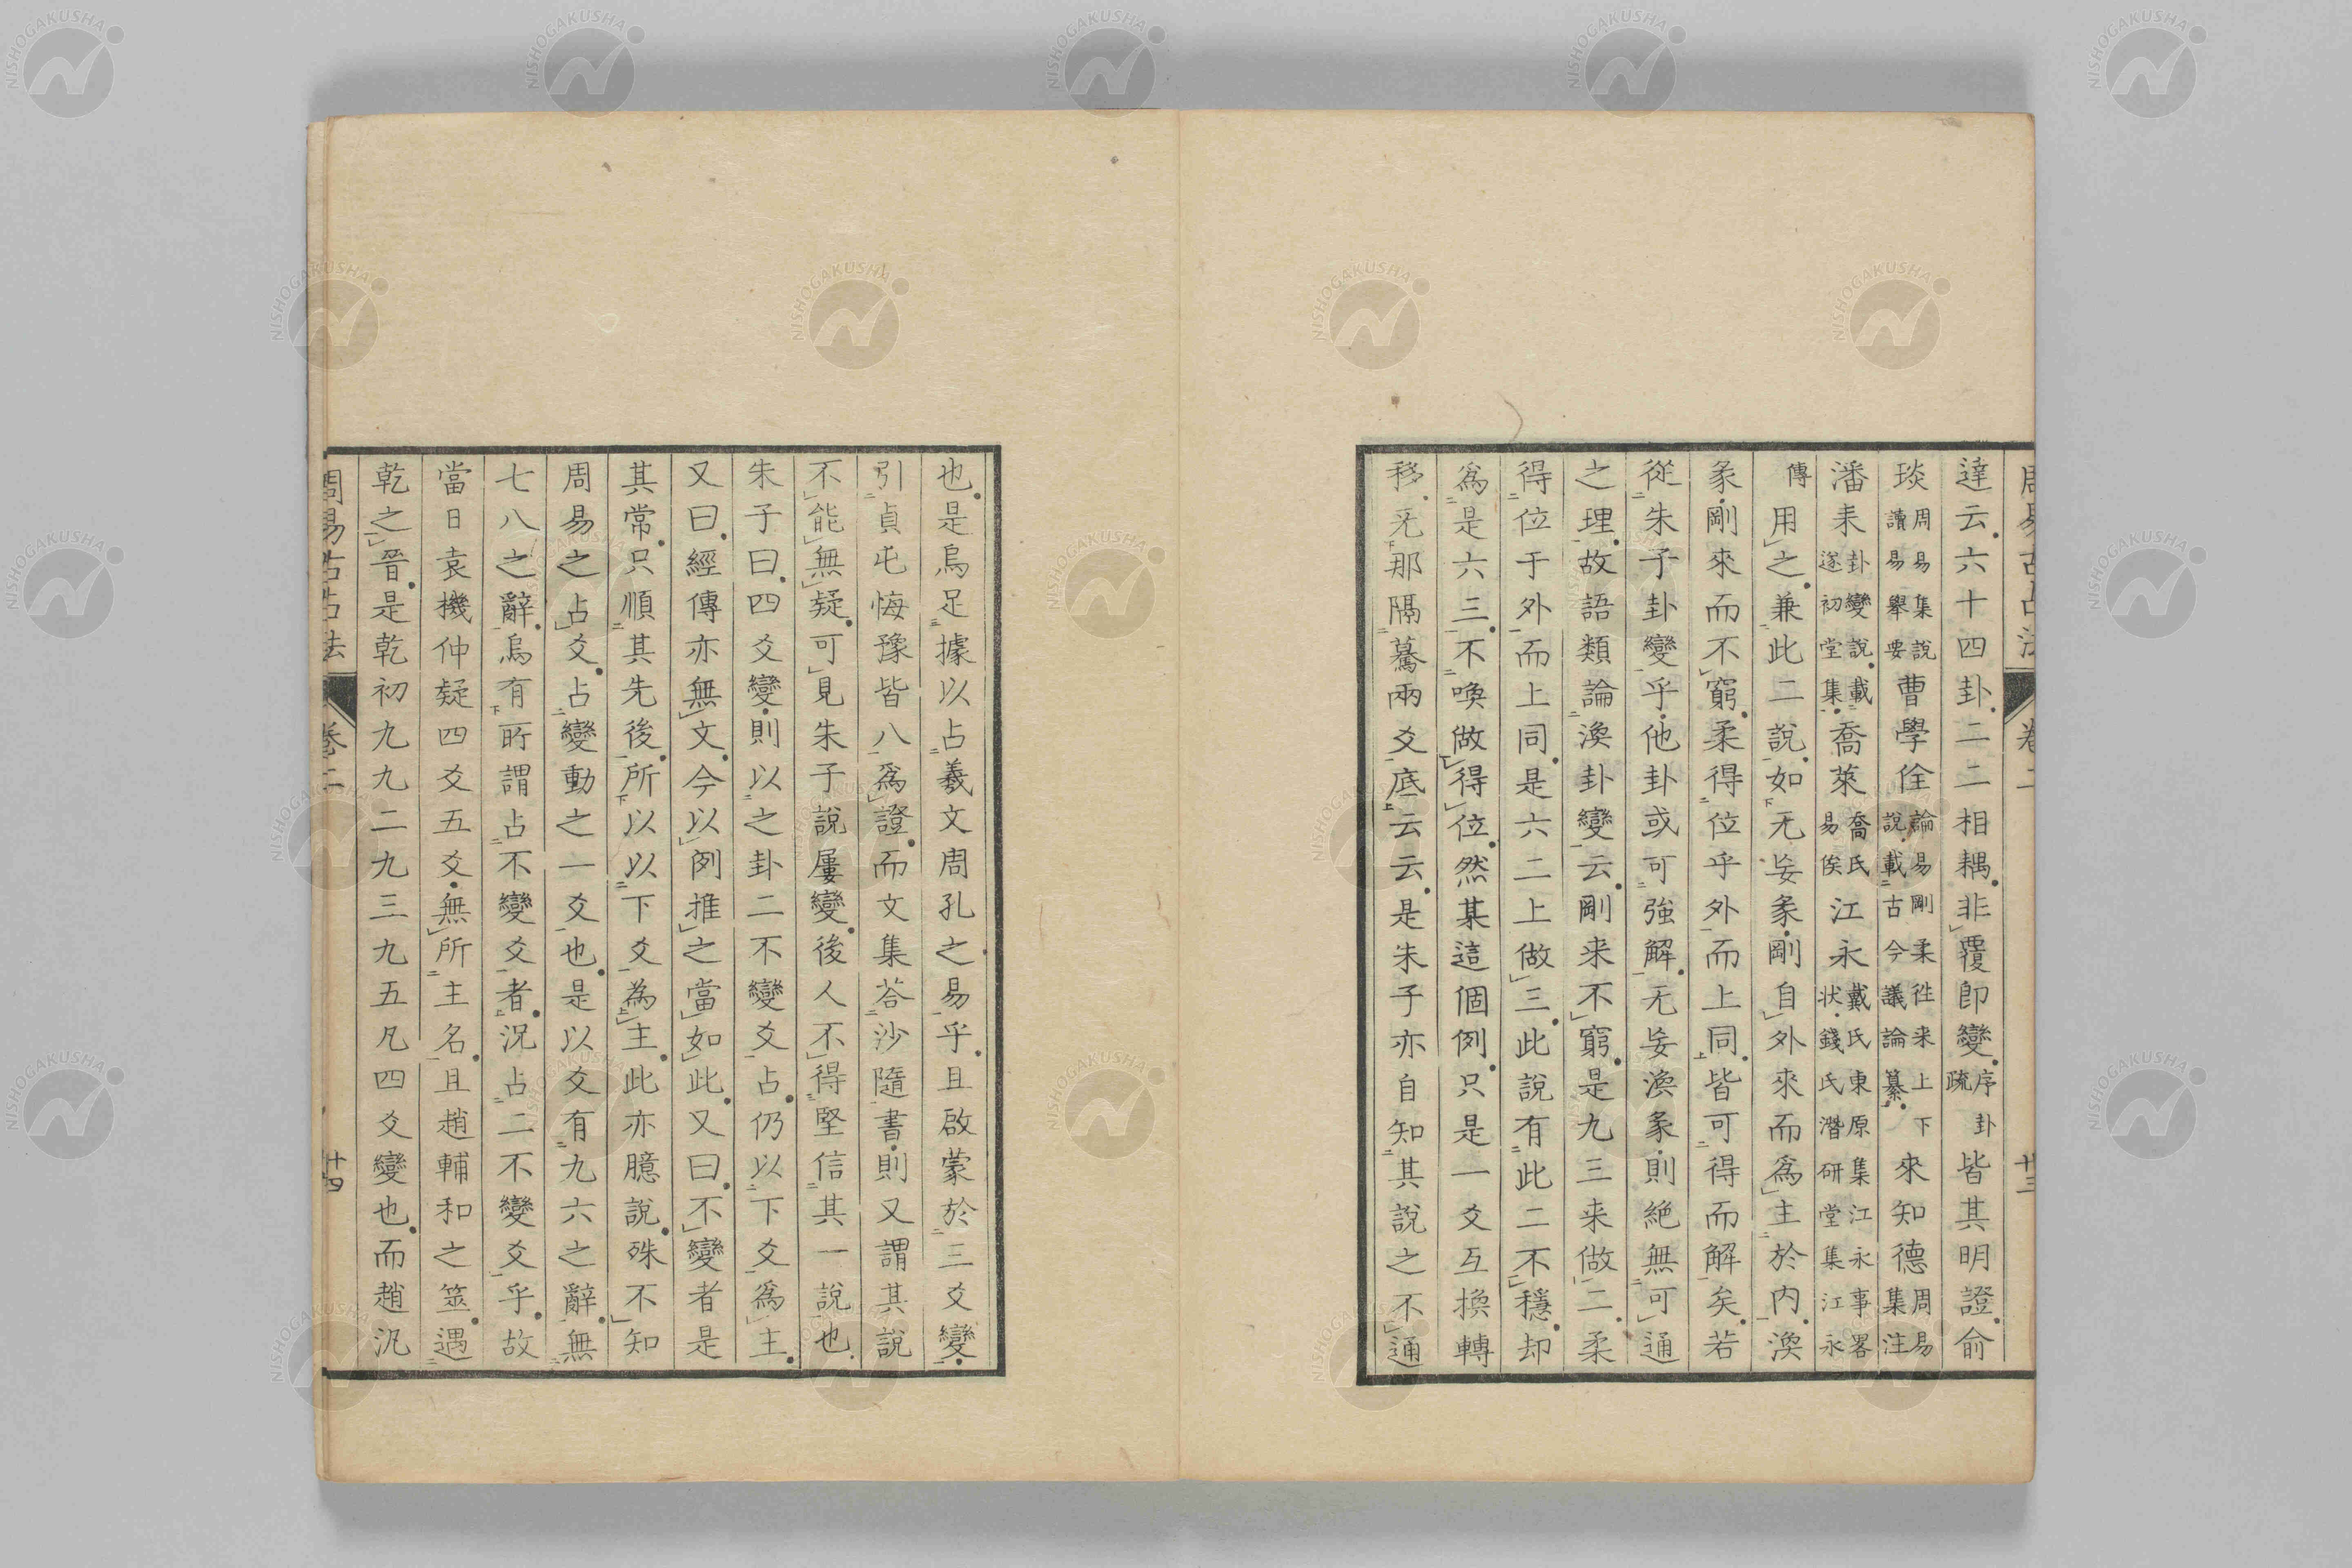 周易古占法　卷二　十三
達云六十四卦二二相耦非覆卽變序卦疏皆其明證俞
琰周易集說讀易舉要曹學佺論易剛柔徃来上下說載古今議論纂來知德周易集注
潘耒卦變說載遂初堂集喬萊喬氏易俟江永戴氏東原集江永事畧状錢氏潛研堂集江永
傳用之兼此二說如无妄彖剛自外來而爲主於內渙
彖剛來而不窮柔得位乎外而上同皆可得而解矣若
從朱子卦變乎他卦或可強解无妄渙彖則絕無可通
之理故語類論渙卦變云剛来不窮是九三来做二柔
得位于外而上同是六二上做三此說有此二不穩却
爲是六三不喚做得位然某這個例只是一爻互換轉
移无那隔驀兩爻底云云是朱子亦自知其說之不通
也是烏足據以占羲文周孔之易乎且啟蒙於三爻變
引貞屯悔豫皆八爲證而文集荅沙隨書則又謂其說
不能無疑可見朱子說屢變後人不得堅信其一說也
朱子曰四爻變則以之卦二不變爻占仍以下爻爲主
又曰經傳亦無文今以例推之當如此又曰不變者是
其常只順其先後所以以下爻為主此亦臆說殊不知
周易之占爻占變動之一爻也是以爻有九六之辭無
七八之辭烏有所謂占不變爻者況占二不變爻乎故
當日袁機仲疑四爻五爻無所主名且趙輔和之筮遇
乾之晉是乾初九九二九三九五凡四爻變也而趙汎
周易古占法　卷二　十四